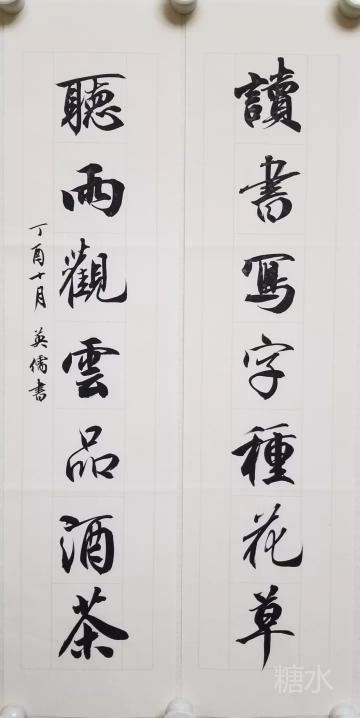 讀書寫字種花草
聽雨觀雲品酒茶
丁酉十月 英儒書
糖水